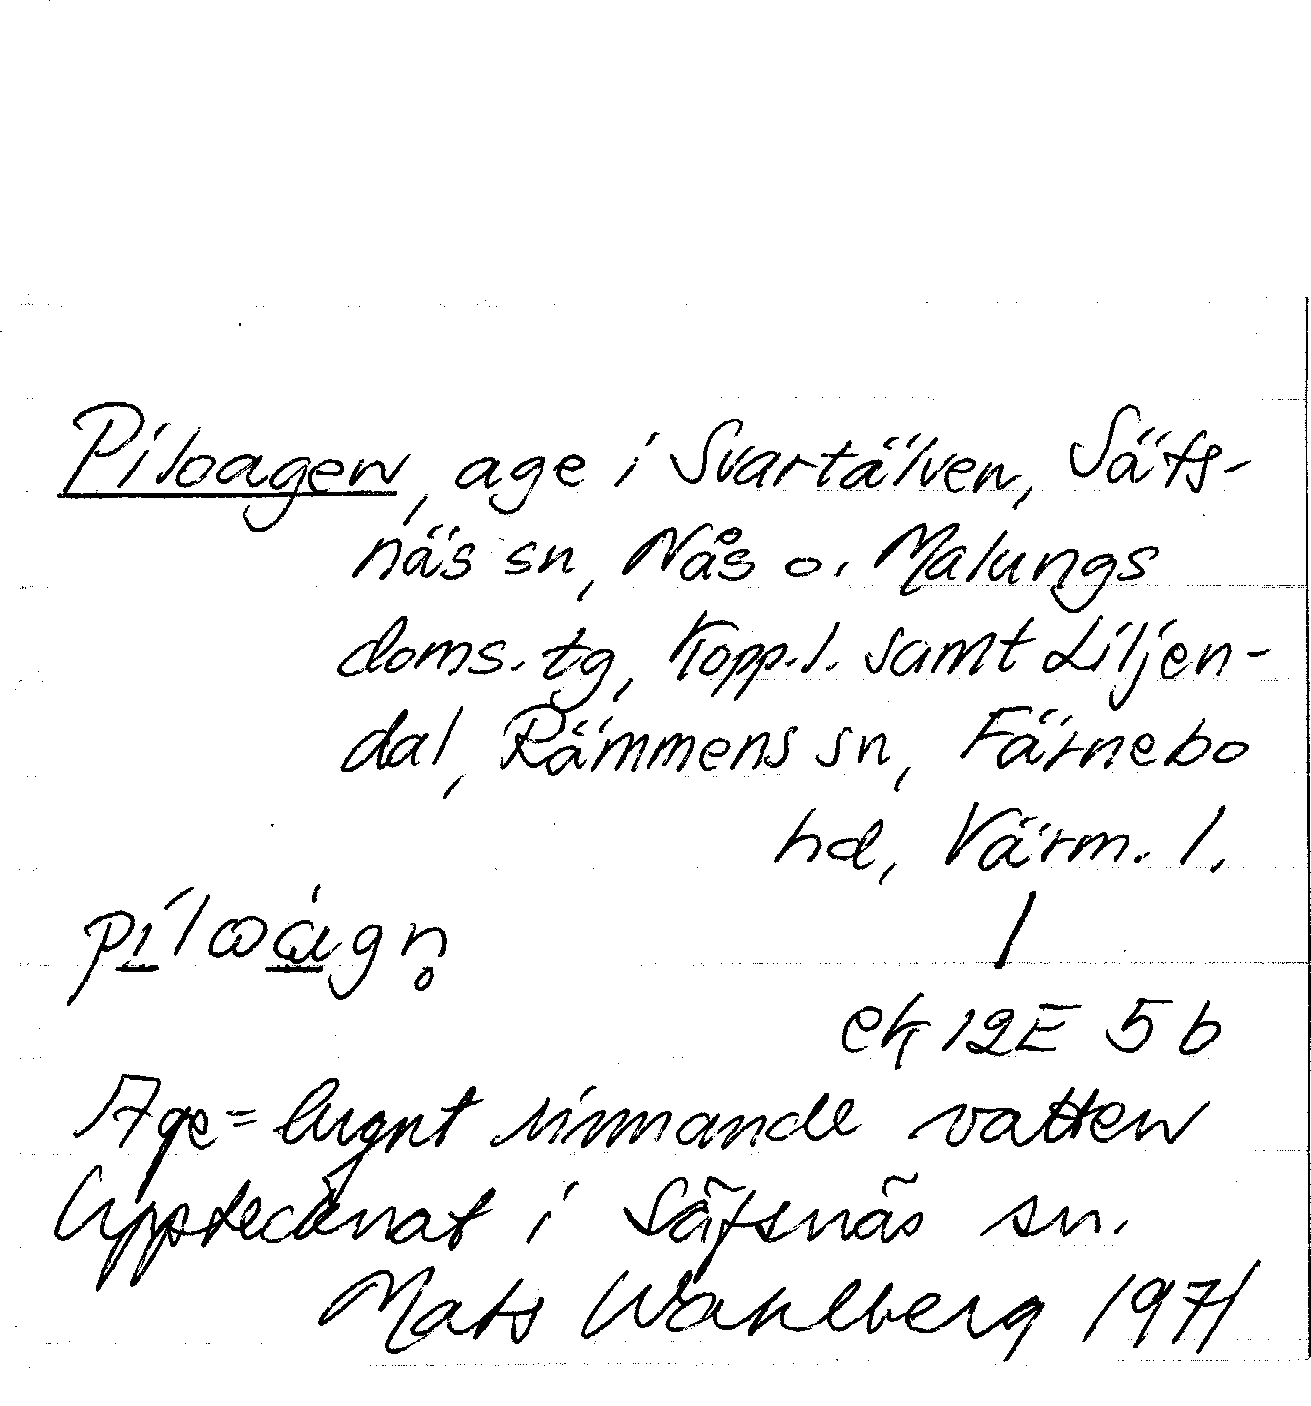 Piloagen, age i Svartälven, Säfs-
näs sn, Nås o. Malungs
doms. tg, Kopp. l. samt Liljen-
dal, Rämmens sn, Färnebo
hd, Värm. l.
ek 12E 5b
Age = lugnt rinnande vatten
Upptecknat i Säfsnäs sn.
Mats Wahlberg 1971